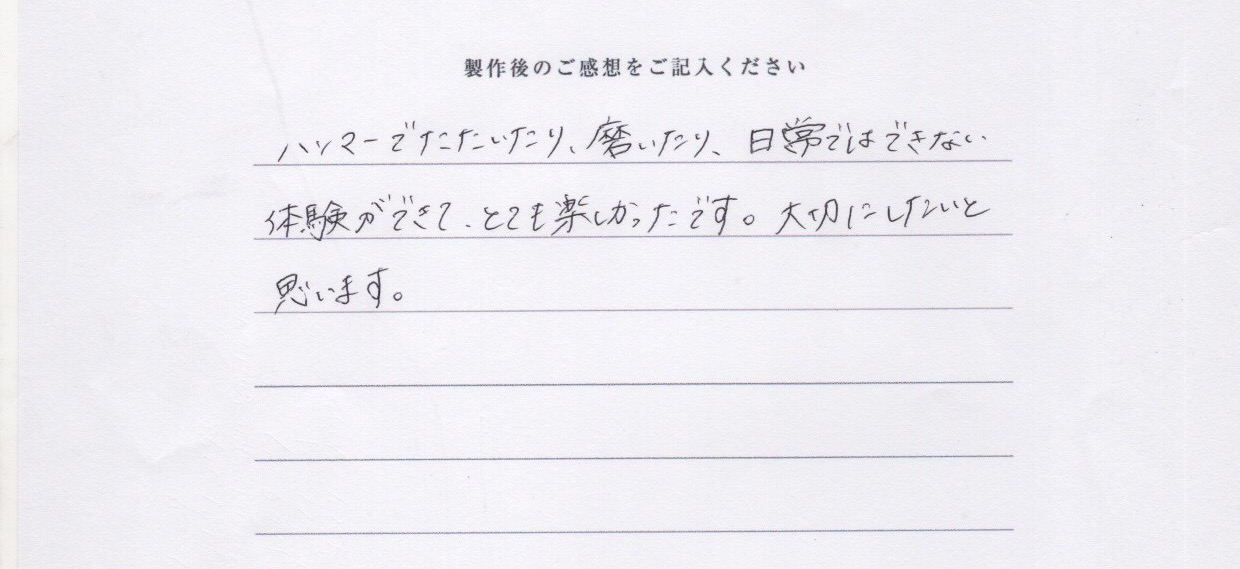 製作後のご感想をご記入ください
ハンマーでたたいたり、磨いたり、日常ではできない
体験ができて、とても楽しかったです。大切にしたいと
思います。